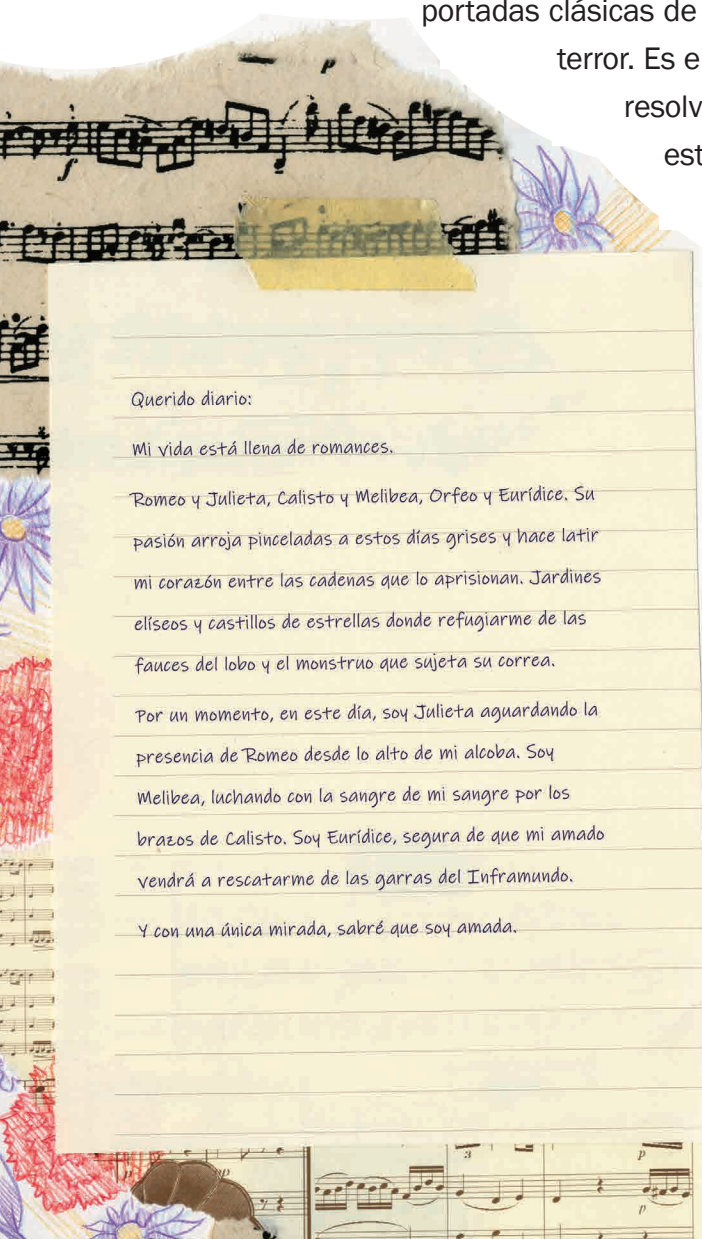 portadas clásicas de
terror. Es e
resolv
est
Querido diario:
Mi vida está llena de romances.
Romeo y Julieta, Calisto y Melibea, Orfeo y Eurídice. Su
pasión arroja pinceladas a estos días grises y hace latir
mi corazón entre las cadenas que lo aprisionan. Jardines
elíseos y castillos de estrellas donde refugiarme de las
fauces del lobo y el monstruo que sujeta su correa.
Por un momento, en este día, soy Julieta aguardando la
presencia de Romeo desde lo alto de mi alcoba. Soy
Melibea, luchando con la sangre de mi sangre por los
brazos de Calisto. Soy Eurídice, segura de que mi amado
vendrá a rescatarme de las garras del Inframundo.
Y con una única mirada, sabré que soy amada.